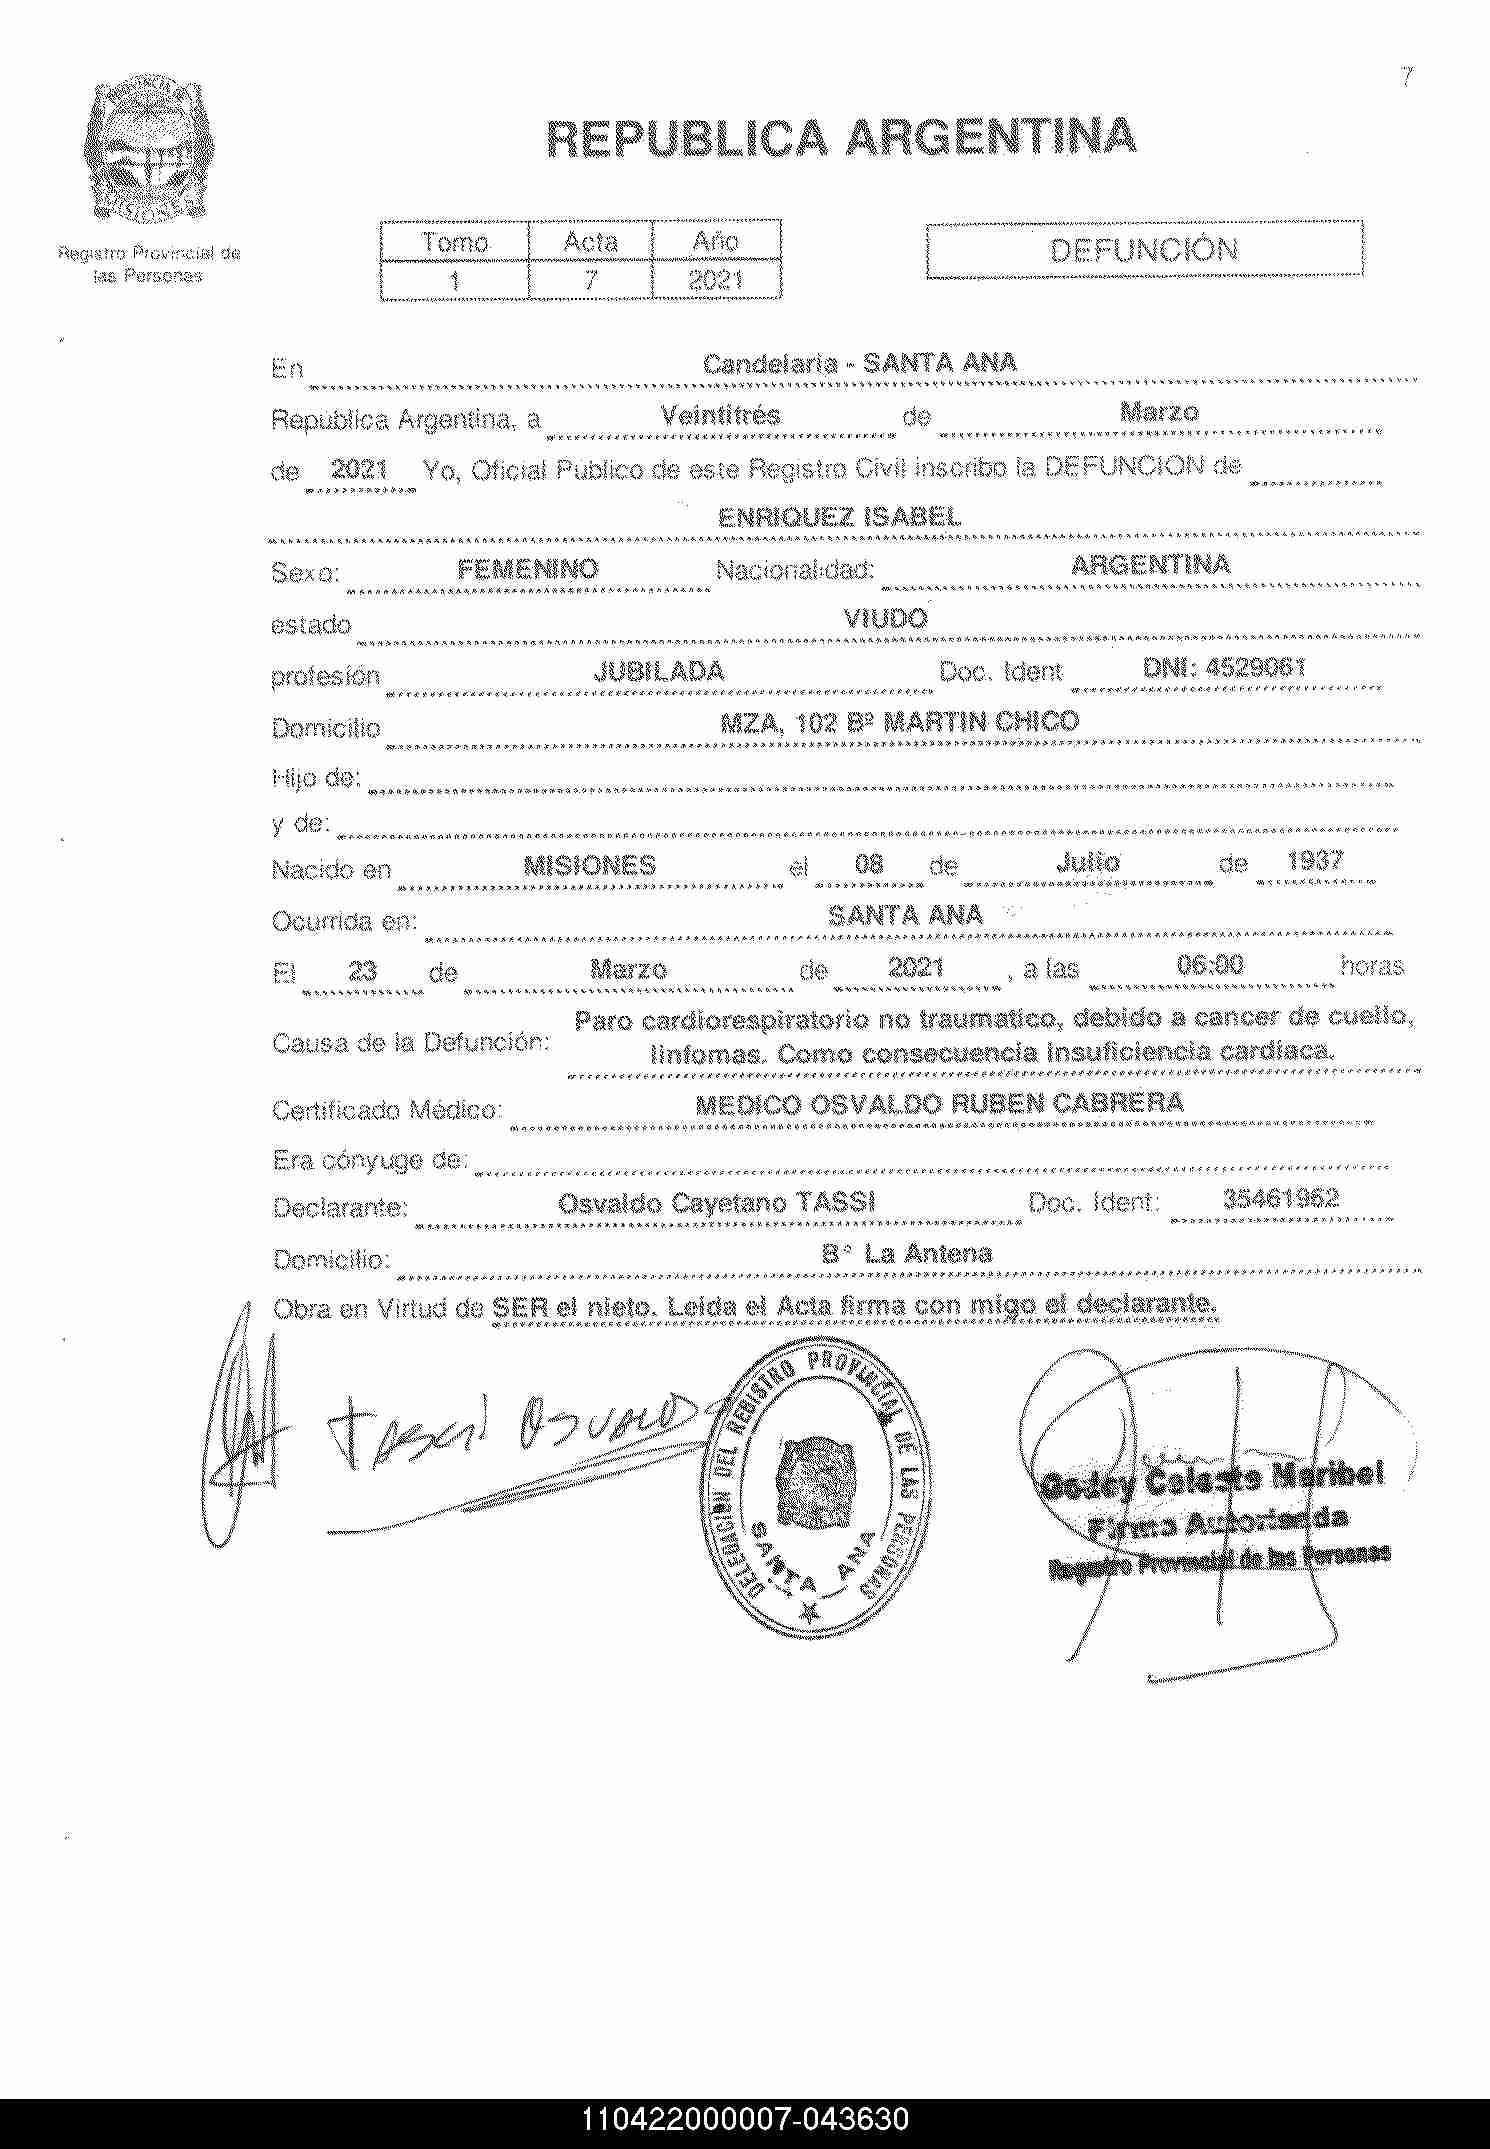 7
REPUBLICA ARGENTINA
Registro Provincial de
las Personas
Tomo Acta Año
1 7 2021
DEFUNCIÓN
En Candelaria - SANTA ANA
República Argentina, a Veintitrés de Marzo
de 2021 Yo, Oficial Público de este Registro Civil inscribo la DEFUNCION de
ENRIQUEZ ISABEL
Sexo: FEMENINO Nacionalidad: ARGENTINA
estado VIUDO
profesión JUBILADA Doc. Ident DNI: 4529061
Domicilio MZA, 102 Bº MARTIN CHICO
Hijo de:
y de:
Nacido en MISIONES el 08 de Julio de 1937
Ocurrida en: SANTA ANA
El 23 de Marzo de 2021 , a las 06:00 horas
Causa de la Defunción: Paro cardiorespiratorio no traumatico, debido a cancer de cuello,
linfomas. Como consecuencia insuficiencia cardiaca.
Certificado Médico: MEDICO OSVALDO RUBEN CABRERA
Era cónyuge de:
Declarante: Osvaldo Cayetano TASSI Doc. Ident: 35461962
Domicilio: B° La Antena
Obra en Virtud de SER el nieto. Leida el Acta firma con migo el declarante.
Tassi Osvaldo
DELEGACION DEL REGISTRO PROVINCIAL DE LAS PERSONAS
SANTA ANA
Godoy Celeste Maribel
Firma Autorizada
Registro Provincial de las Personas
110422000007-043630